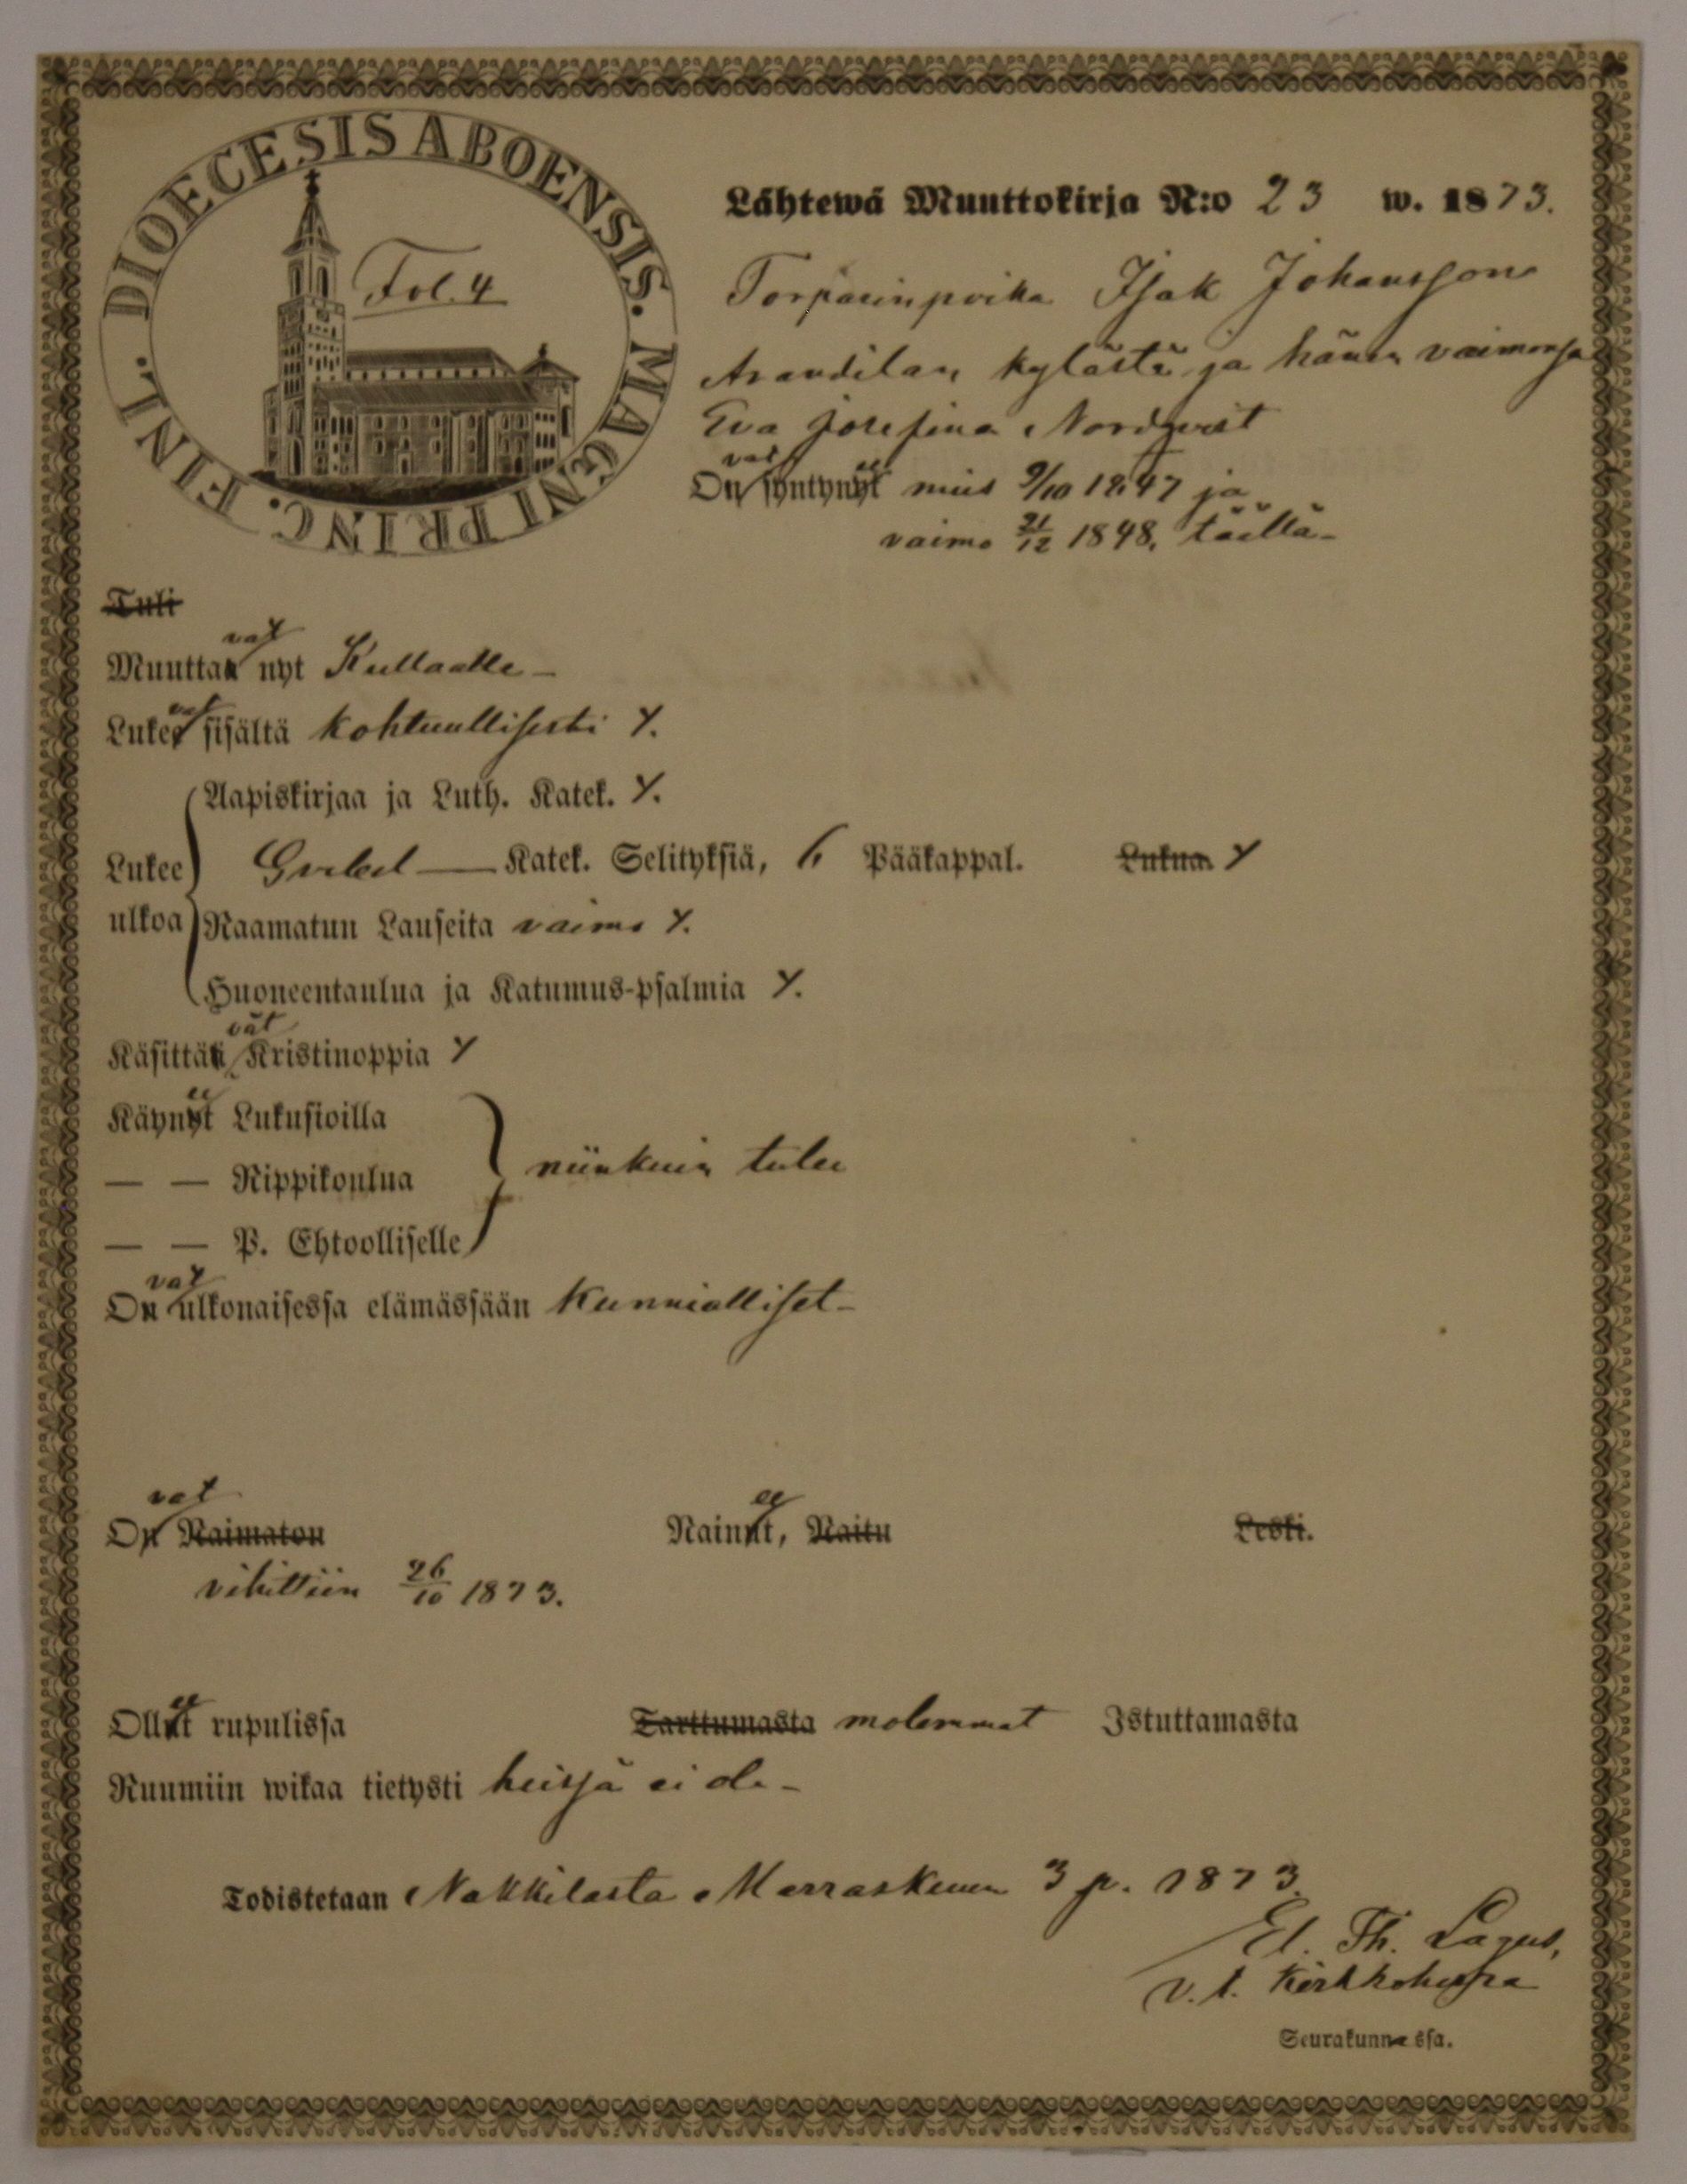 DIOECESIS ABOENSIS. MAGNI PRINC. FINL.
Fol. 4
Lähtewä Muuttokirja N:o 23 w. 1873.
Torparinpoika Isak Johansson
kylästä ja hänen vaimonsa
Eva Josefina Nordqvist
vat ee
On syntynyt mies 9/10 1847 ja
vaimo 21/12 1848, täällä
Tuli
vat
Muuttaa nyt Kullaalle
vat
Lukee sisältä kohtuullisesti
Aapiskirjaa ja Luth. Katek.
Lukee ulkoa
Katek. Selityksiä, 6 Pääkappal. Lukua.
Raamatun Lauseita vaimo
Huoneentaulua ja Katumus-psalmia
vät
Käsittää Kristinoppia
ee
Käynyt Lukusioilla
— — Rippikoulua niinkuin tulee
— — P. Ehtoolliselle
vat
On ulkonaisessa elämässään kunnialliset
vat ee
On Naimaton Nainut, Naitu Leski.
vihittiin 26/10 1873.
ee
Ollut rupulissa Tarttumasta molemmat Istuttamasta
Ruumiin wikaa tietysti heissä ei ole
Todistetaan Nakkilasta Marraskuun 3 p. 1873.
El. Th. Lagus,
v.t. Kirkkoherra
Seurakunnassa.